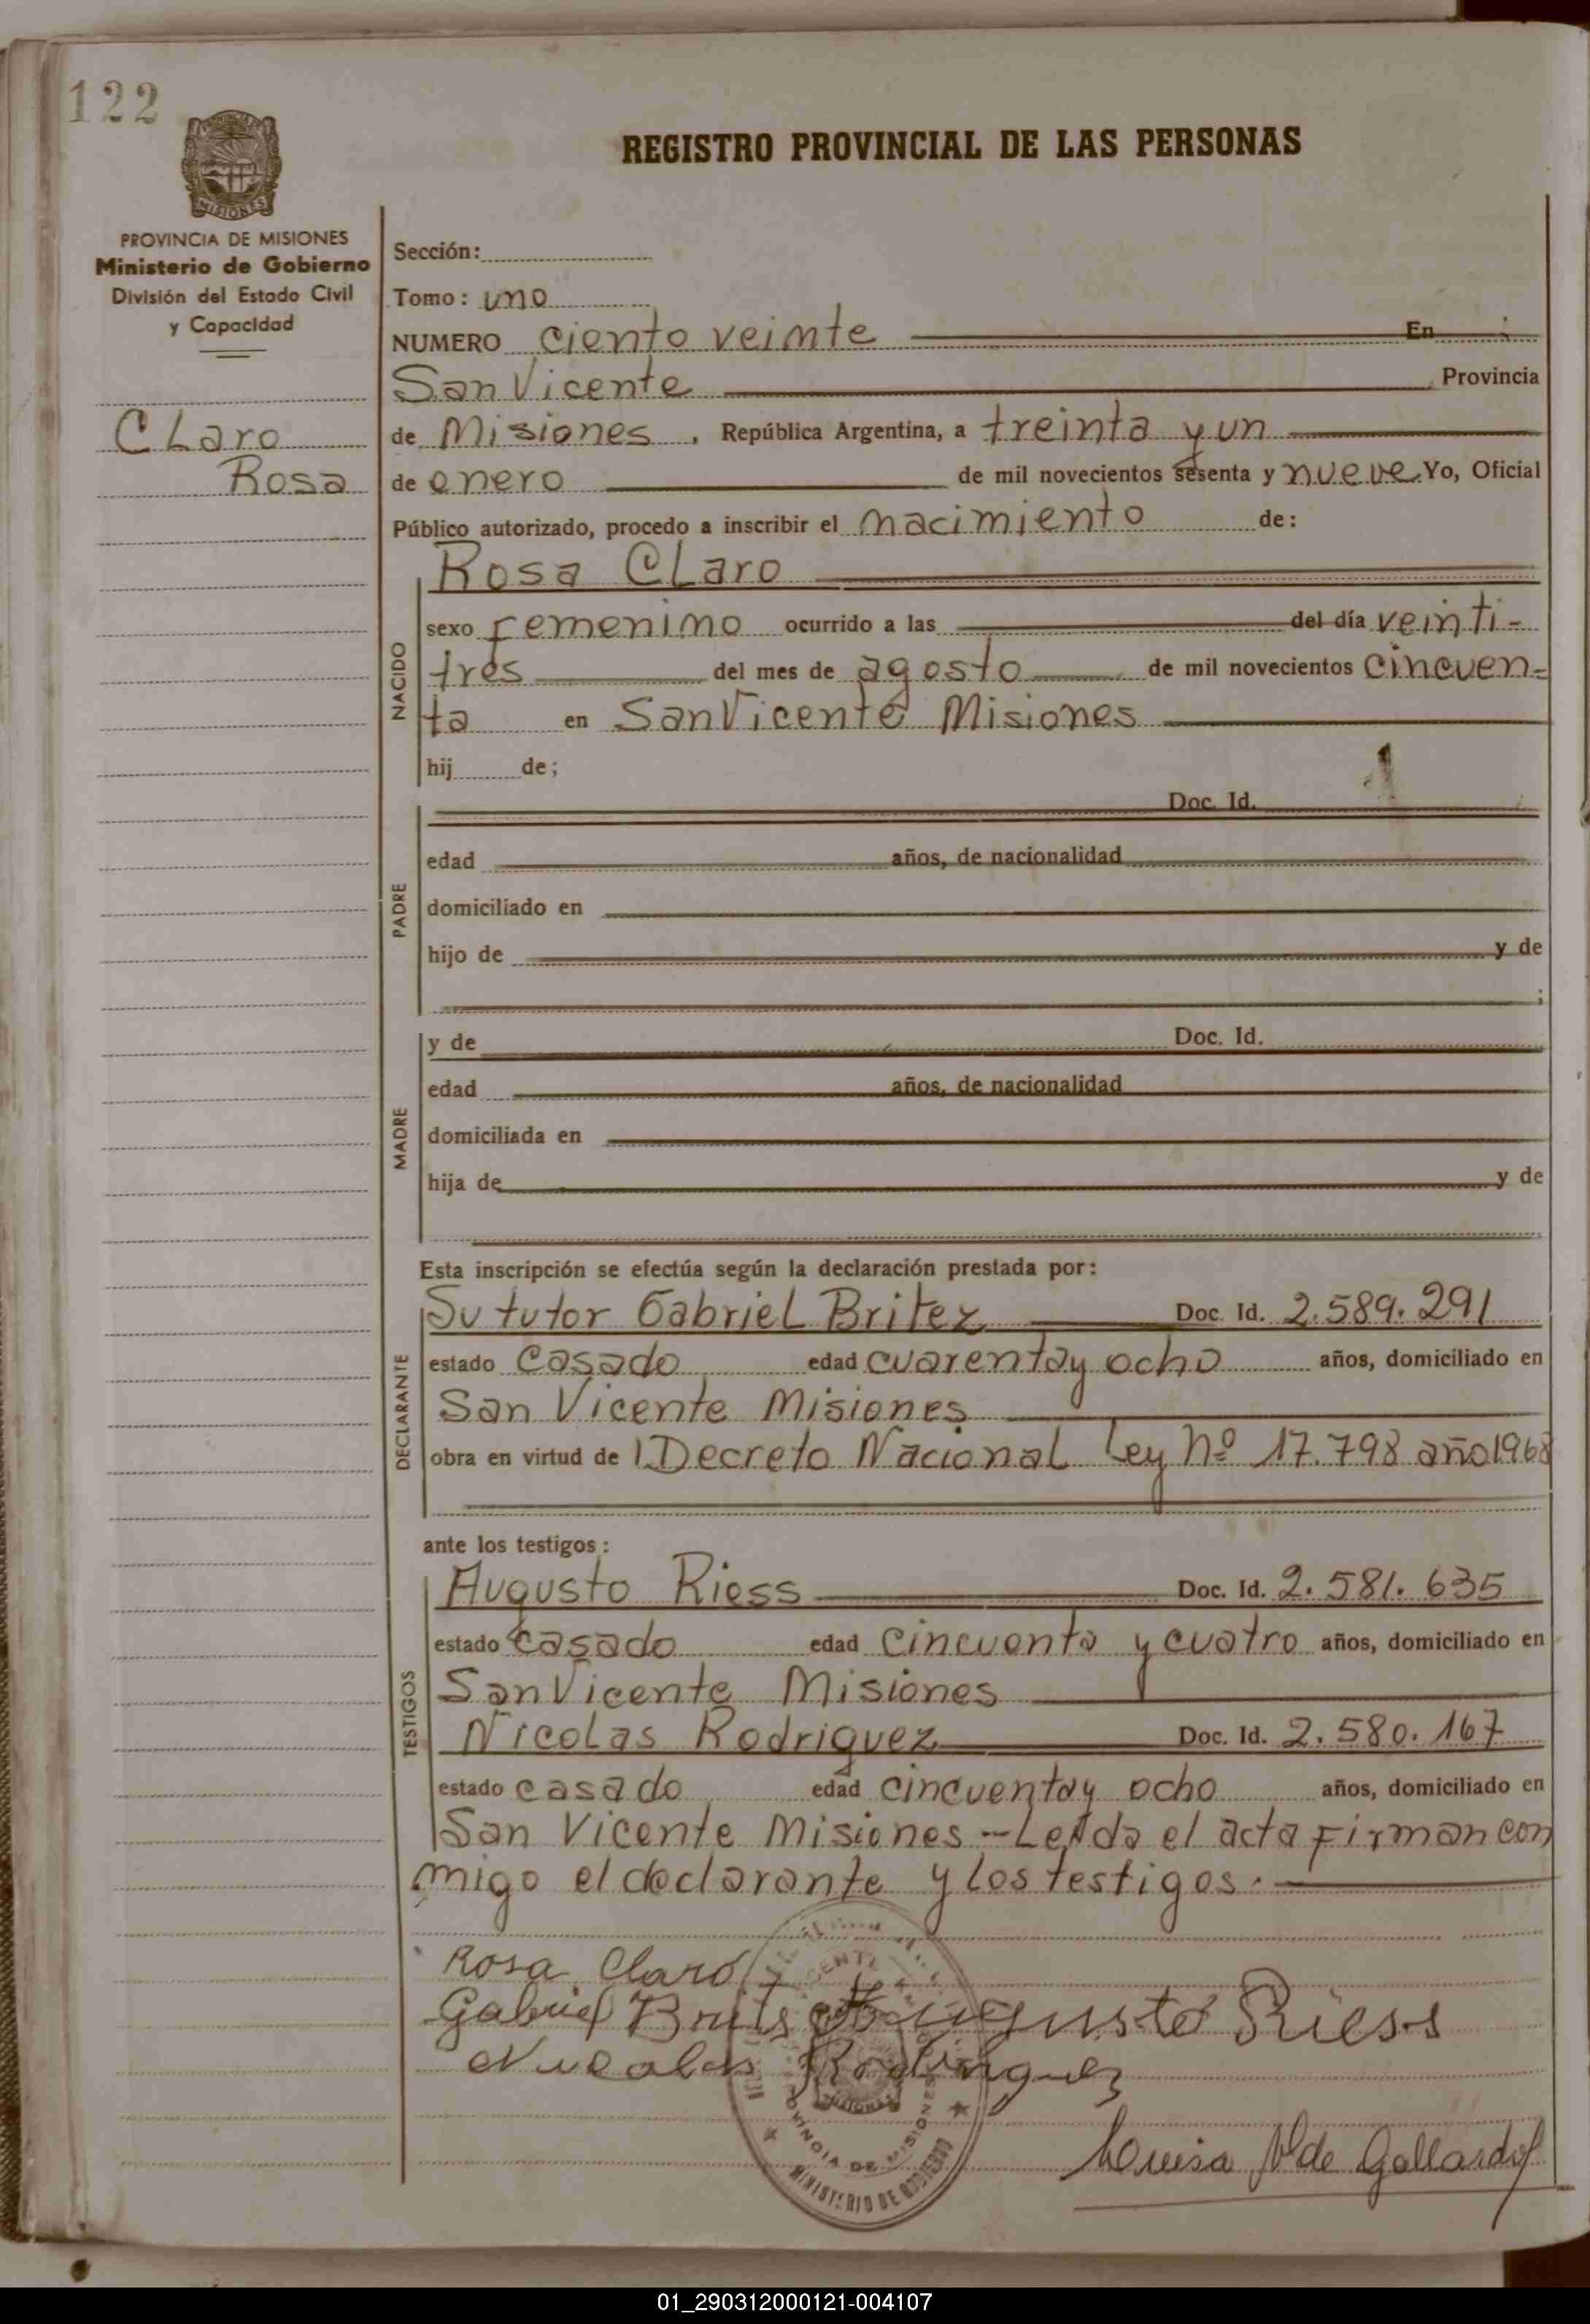 122
REGISTRO PROVINCIAL DE LAS PERSONAS
MISIONES
PROVINCIA DE MISIONES
Ministerio de Gobierno
División del Estado Civil
y Capacidad
Claro
Rosa
Sección:
Tomo: uno
NUMERO ciento veinte En
San Vicente Provincia
de Misiones, República Argentina, a treinta y un
de enero de mil novecientos sesenta y nueve Yo, Oficial
Público autorizado, procedo a inscribir el nacimiento de:
NACIDO
Rosa Claro
sexo Femenino ocurrido a las del día veinti-
tres del mes de agosto de mil novecientos cincuen-
ta en San Vicente Misiones
hij de;
PADRE
Doc. Id.
edad años, de nacionalidad
domiciliado en
hijo de y de
;
MADRE
y de Doc. Id.
edad años, de nacionalidad
domiciliada en
hija de y de
Esta inscripción se efectúa según la declaración prestada por:
DECLARANTE
Su tutor Gabriel Britez Doc. Id. 2.589.291
estado casado edad cuarenta y ocho años, domiciliado en
San Vicente Misiones
obra en virtud de Decreto Nacional Ley Nº 17.798 año 1968
ante los testigos:
TESTIGOS
Augusto Riess Doc. Id. 2.581.635
estado casado edad cincuenta y cuatro años, domiciliado en
San Vicente Misiones
Nicolas Rodriguez Doc. Id. 2.580.167
estado casado edad cincuenta y ocho años, domiciliado en
San Vicente Misiones - Leida el acta Firman con
migo el declarante y los testigos.
Rosa Claro
Gabriel Brites Augusto Riess
Nicolas Rodriguez
PROVINCIA DE MISIONES
MINISTERIO DE GOBIERNO
de Gallardo
01_290312000121-004107